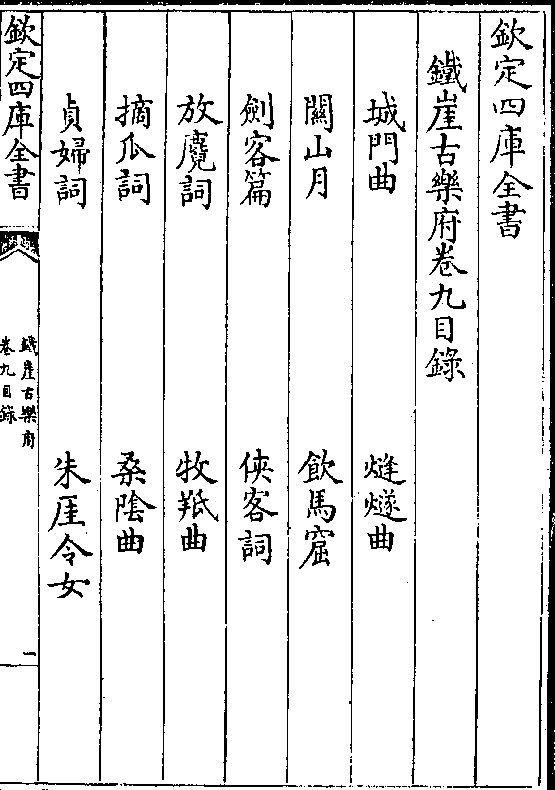 欽定四庫全書
鐵崖古樂府卷九目錄
城門曲　燧燧曲
關山月　飲馬窟
劍客篇　俠客詞
放麑詞　牧羝曲
摘瓜詞　桑陰曲
貞婦詞　朱厓令女
欽定四庫全書
鐵崖古樂府
卷九目錄
一